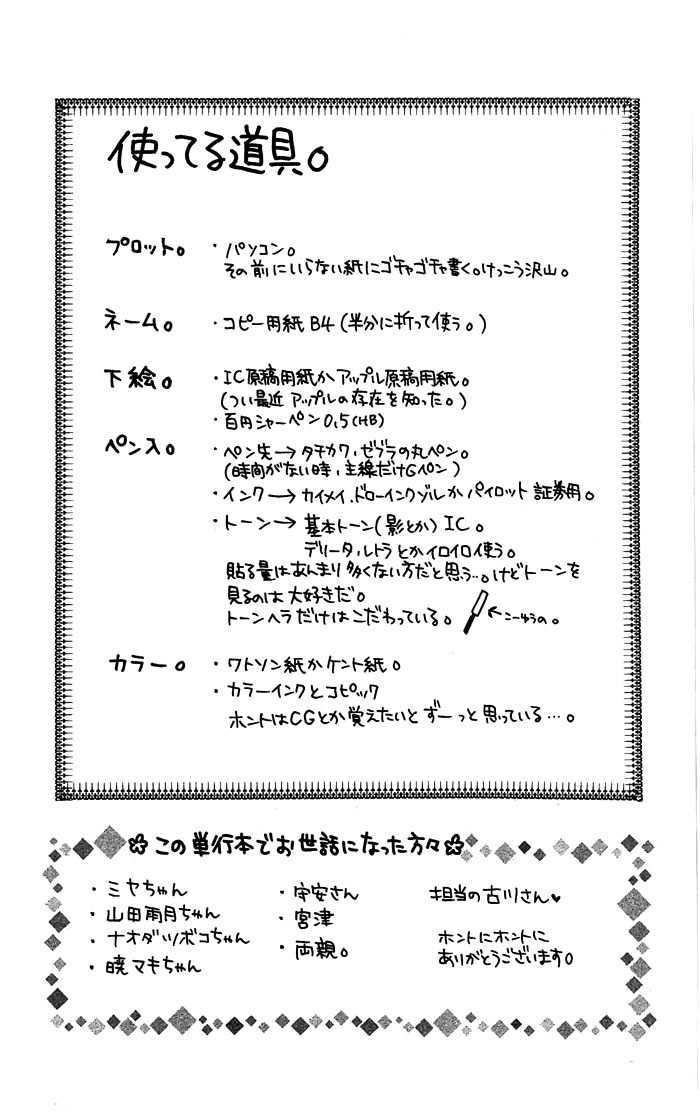 使ってる道具。
プロット。 ・パソコン。
その前にいらない紙にゴチャゴチャ書く。けっこう沢山。
ネーム。 ・コピー用紙 B4 (半分に折って使う。)
下絵。 ・IC原稿用紙か アップル原稿用紙。
(つい最近 アップルの存在を知った。)
・百円シャーペン 0,5 (HB)
ペン入。 ・ペン先→タチカワ,ゼブラの丸ペン。
(時間がない時,主線だけGペン)
・インク→カイメイ.ドローインクゾルか パイロット 証券用。
・トーン→ 基本トーン(影とか) IC。
デリータ,レトラとかイロイロ使う。
貼る量はあんまり多くない方だと思う…。けどトーンを
見るのは 大好きだ。
トーンヘラだけはこだわっている。 ←こーゆうの。
カラー。 ・ワトソン紙かケント紙。
・カラーインクとコピック
ホントはCGとか覚えたいとずーっと思っている…。
この単行本でお世話になった方々
・ミヤちゃん
・山田雨月ちゃん
・ナオダツボコちゃん
・暁マキちゃん
・宇安さん
・宮津
・両親。
担当の古川さん♥
ホントにホントに
ありがとうございます。